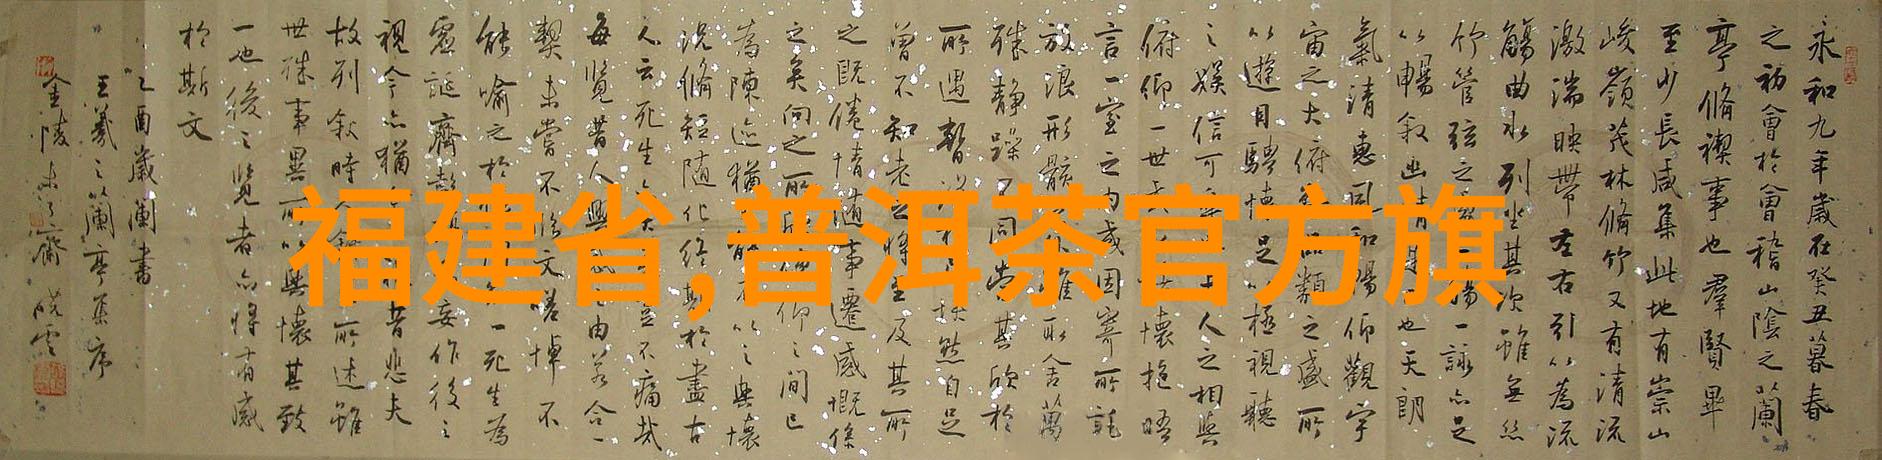 福建省,普洱茶官方旗
永和九年歲在癸丑暮春
之初會於會稽山陰之蘭
亭脩禊事也羣賢畢
至少長咸集此地有崇山
峻嶺茂林脩竹又有清流
激湍映帶左右引以為流
觴曲水列坐其次雖無絲
竹管弦之觴一詠亦足
以暢敘幽情也天朗
氣清惠風和暢仰觀宇
宙之大俯品類之盛所
以遊目騁懷足以極視聽
之娛信可人之相與
俯仰一世懷抱晤
言一室之內或因寄所託
放浪形骸雖取舍萬
殊靜躁不同當其欣於
所遇暫快然自足
曾不知老之將至及其所
之既倦情隨事遷感慨係
之矣向之所仰之間已
為陳迹猶能不以之興懷
況脩短隨化終期於盡古
人云死生大豈不痛哉
每覽昔人興感由若合一
契未嘗不臨文嗟悼不
能喻之於一死生為
虛誕齊彭妄作後之
視今亦猶昔悲夫
故列敘時所述雖
世殊事異所以興懷其致
一也後之覽者亦將有感
於斯文
乙酉歲蘭書
王羲之蘭亭集序
金陵齋